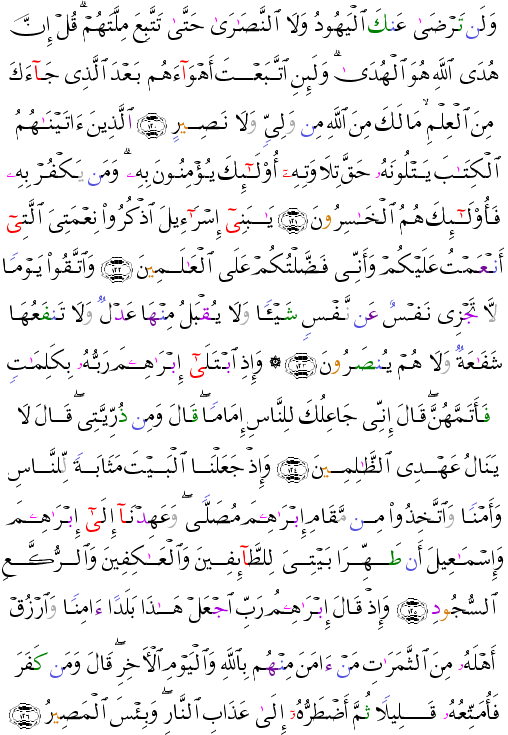 وَلَن تَرْضَىٰ عَنكَ ٱلْيَهُودُ وَلَا ٱلنَّصَٰرَىٰ حَتَّىٰ تَتَّبِعَ مِلَّتَهُمْ ۗ قُلْ إِنَّ
هُدَى ٱللَّهِ هُوَ ٱلْهُدَىٰ ۗ وَلَئِنِ ٱتَّبَعْتَ أَهْوَآءَهُم بَعْدَ ٱلَّذِى جَآءَكَ
مِنَ ٱلْعِلْمِ ۙ مَا لَكَ مِنَ ٱللَّهِ مِن وَلِىٍّ وَلَا نَصِيرٍ ﴿١٢٠﴾ ٱلَّذِينَ ءَاتَيْنَٰهُمُ
ٱلْكِتَٰبَ يَتْلُونَهُۥ حَقَّ تِلَاوَتِهِۦٓ أُو۟لَٰٓئِكَ يُؤْمِنُونَ بِهِۦ ۗ وَمَن يَكْفُرْ بِهِۦ
فَأُو۟لَٰٓئِكَ هُمُ ٱلْخَٰسِرُونَ ﴿١٢١﴾ يَٰبَنِىٓ إِسْرَٰٓءِيلَ ٱذْكُرُوا۟ نِعْمَتِىَ ٱلَّتِىٓ
أَنْعَمْتُ عَلَيْكُمْ وَأَنِّى فَضَّلْتُكُمْ عَلَى ٱلْعَٰلَمِينَ ﴿١٢٢﴾ وَٱتَّقُوا۟ يَوْمًا
لَّا تَجْزِى نَفْسٌ عَن نَّفْسٍ شَيْـًٔا وَلَا يُقْبَلُ مِنْهَا عَدْلٌ وَلَا تَنفَعُهَا
شَفَٰعَةٌ وَلَا هُمْ يُنصَرُونَ ﴿١٢٣﴾ ۞ وَإِذِ ٱبْتَلَىٰٓ إِبْرَٰهِۦمَ رَبُّهُۥ بِكَلِمَٰتٍ
فَأَتَمَّهُنَّ ۖ قَالَ إِنِّى جَاعِلُكَ لِلنَّاسِ إِمَامًا ۖ قَالَ وَمِن ذُرِّيَّتِى ۖ قَالَ لَا
يَنَالُ عَهْدِى ٱلظَّٰلِمِينَ ﴿١٢٤﴾ وَإِذْ جَعَلْنَا ٱلْبَيْتَ مَثَابَةً لِّلنَّاسِ
وَأَمْنًا وَٱتَّخِذُوا۟ مِن مَّقَامِ إِبْرَٰهِۦمَ مُصَلًّى ۖ وَعَهِدْنَآ إِلَىٰٓ إِبْرَٰهِۦمَ
وَإِسْمَٰعِيلَ أَن طَهِّرَا بَيْتِىَ لِلطَّآئِفِينَ وَٱلْعَٰكِفِينَ وَٱلرُّكَّعِ
ٱلسُّجُودِ ﴿١٢٥﴾ وَإِذْ قَالَ إِبْرَٰهِۦمُ رَبِّ ٱجْعَلْ هَٰذَا بَلَدًا ءَامِنًا وَٱرْزُقْ
أَهْلَهُۥ مِنَ ٱلثَّمَرَٰتِ مَنْ ءَامَنَ مِنْهُم بِٱللَّهِ وَٱلْيَوْمِ ٱلْءَاخِرِ ۖ قَالَ وَمَن كَفَرَ
فَأُمَتِّعُهُۥ قَلِيلًا ثُمَّ أَضْطَرُّهُۥٓ إِلَىٰ عَذَابِ ٱلنَّارِ ۖ وَبِئْسَ ٱلْمَصِيرُ ﴿١٢٦﴾